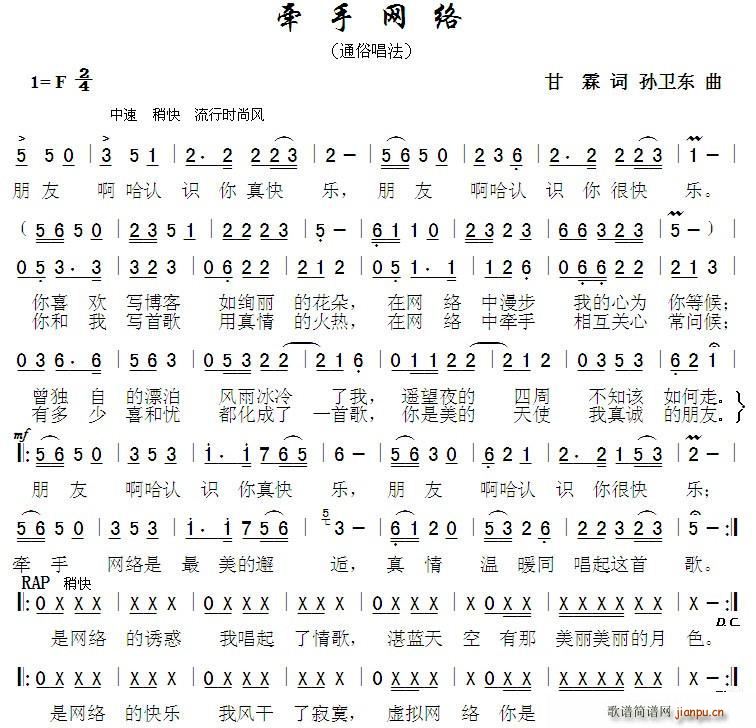 牵手网络
（通俗唱法）
1= F 2/4
甘 霖 词 孙卫东 曲
中速 稍快 流行时尚风
5 5 0 | 3 5 1 | 2· 2 2 2 3 | 2 - | 5 6 5 0 | 2 3 6 | 2· 2 2 2 3 | 1 - |
朋 友 啊 哈认 识 你 真快 乐， 朋 友 啊哈认 识 你 很快 乐。
（5 6 5 0 | 2 3 5 1 | 2 2 2 3 | 5 - | 6 1 1 0 | 2 3 2 3 | 6 6 3 2 3 | 5 - ）|
0 5 3· 3 | 3 2 3 | 0 6 2 2 | 2 1 2 | 0 5 1· 1 | 1 2 6 | 0 6 6 2 | 2 1 3 |
你喜 欢 写博客 如绚丽 的花朵， 在网 络 中漫步 我的心为 你等候；
你和 我 写首歌 用真情 的火热， 在网 络 中牵手 相互关心 常问候；
0 3 6· 6 | 5 3 5 | 0 5 3 2 2 | 2 1 6 | 0 1 1 2 2 | 2 1 2 | 0 5 3 5 | 6 2 1 |
曾独 自 的漂泊 风雨冰冷 了我， 遥望夜的 四周 不知该 如何走。
有多 少 喜和忧 都化成了 一首歌， 你是美的 天使 我真诚 的朋友。
mf
|: 5 6 5 0 | 3 5 3 | i· i 7 6 5 | 6 - | 5 3 0 | 6 2 1 | 2· 2 1 5 3 | 2 - |
朋 友 啊哈认 识 你真快 乐， 朋 友 啊哈认 识 你很快 乐；
5 6 5 0 | 3 5 3 | i· i 7 6 5 | 5 3 - | 6 1 2 0 | 5 3 2 6 | 2 3 2 7 6 | 5 - :|
牵 手 网络是 最 美的邂 逅， 真 情 温 暖同 唱起这首 歌。
RAP 稍快
|: 0 X X X | X X X | 0 X X X | X X X | 0 X X X | X X X | X X X X | X - :|
D.C.
是网络 的诱惑 我唱起 了情歌， 湛蓝天 空有那 美丽美丽的月 色。
|: 0 X X X | X X X | 0 X X X | X X X | 0 X X X | X X X | X X X X | X - :|
是网络 的快乐 我风干 了寂寞， 虚拟网 络 你是
歌谱简谱网
jianpu.cn